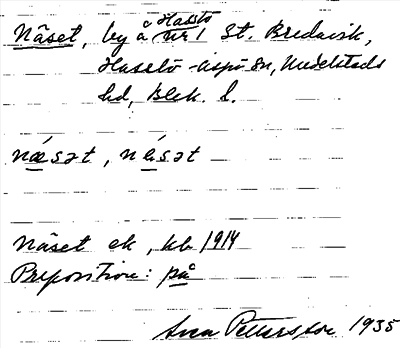 Näset, by å Hasslö nr 1 St. Bredavik,
Hasslö-Aspö sn, Medelstads
hd, Blek. l.
nǽsət, nǽsət
Näset ek, kb 1914
Preposition: på
Pettersson 1935